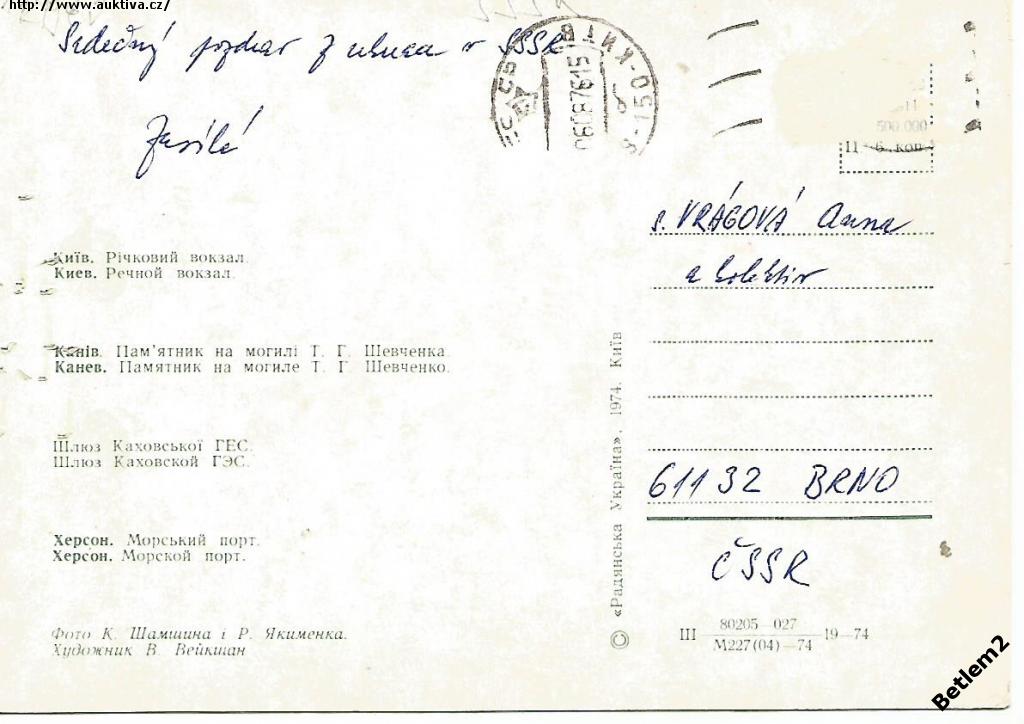 http://www.auktiva.cz/
Srdečný pozdrav z v SSSR
КИЕВ
06087615
500.000
6 коп
s. VRÁGOVÁ Anna
a kolektiv
Київ. Річковий вокзал.
Киев. Речной вокзал.
Канів. Пам'ятник на могилі Т. Г. Шевченка.
Канев. Памятник на могиле Т. Г. Шевченко.
Шлюз Каховської ГЕС.
Шлюз Каховской ГЭС.
61132 BRNO
Херсон. Морський порт.
Херсон. Морской порт.
ČSSR
Фото К. Шамшина і Р. Якименка.
Художник В. Вейкшан
© «Радянська Україна», 1974. Київ
Ш 80205—027 19—74
М227(04)—74
Betlem2